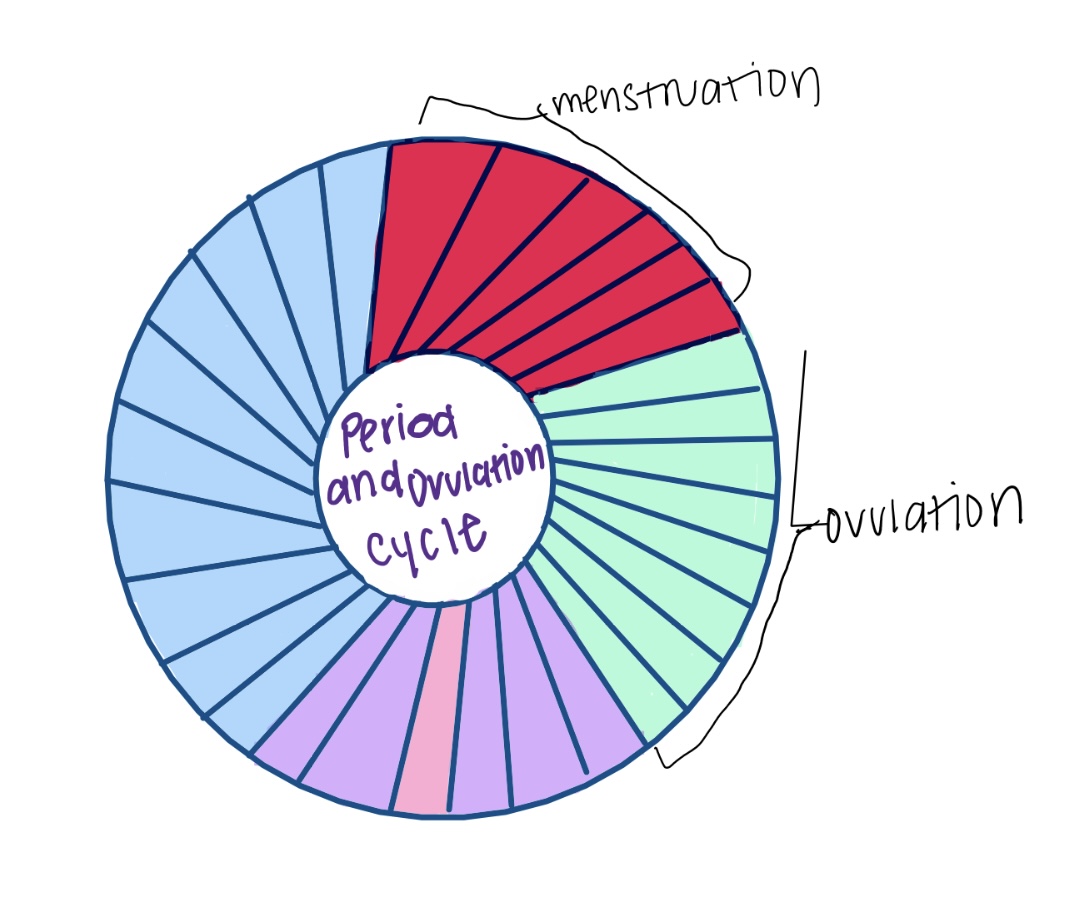 menstruation
Period
and Ovulation
cycle
ovulation